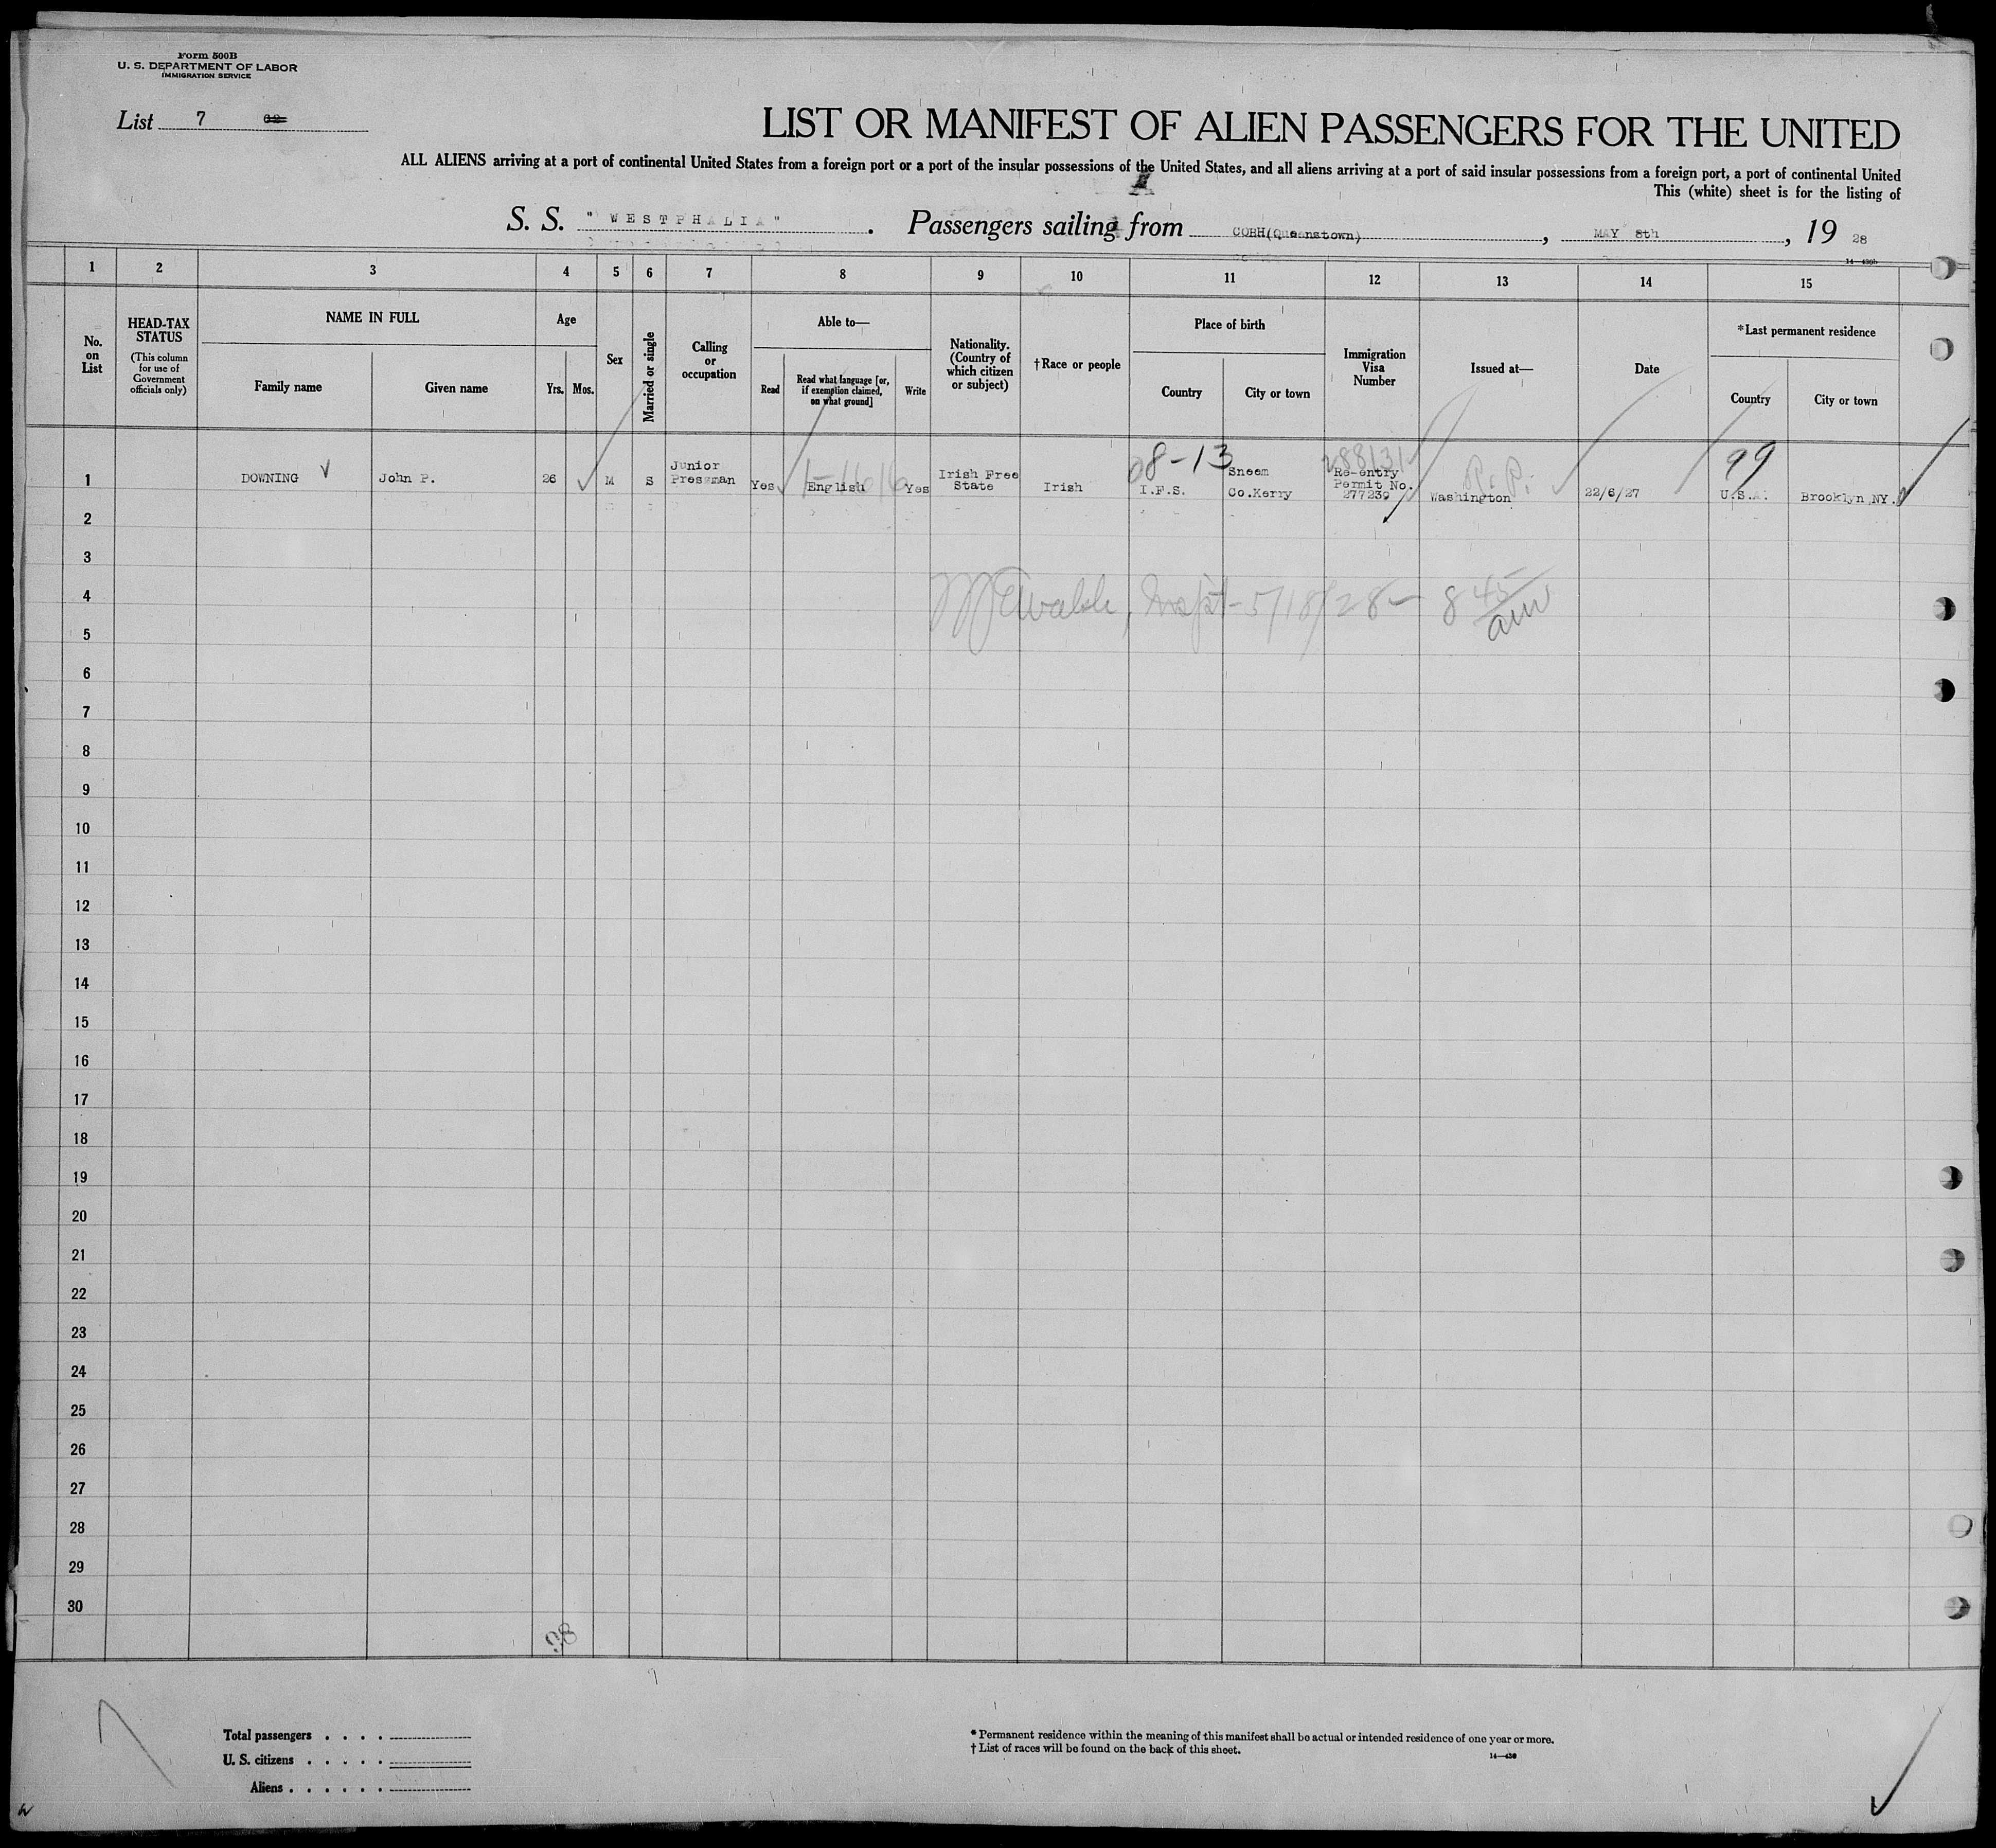 Form 500B
U. S. DEPARTMENT OF LABOR
IMMIGRATION SERVICE
List 7
LIST OR MANIFEST OF ALIEN PASSENGERS FOR THE UNITED
ALL ALIENS arriving at a port of continental United States from a foreign port or a port of the insular possessions of the United States, and all aliens arriving at a port of said insular possessions from a foreign port, a port of continental United
This (white) sheet is for the listing of
S. S. "WESTPHALIA". Passengers sailing from COBH(Queenstown), MAY 8th, 19 28
1 2 3 4 5 6 7 8 9 10 11 12 13 14 15
No. on List
HEAD-TAX STATUS
(This column for use of Government officials only)
NAME IN FULL
Family name
Given name
Age
Yrs.
Mos.
Sex
Married or single
Calling or occupation
Able to—
Read
Read what language [or, if exemption claimed, on what ground]
Write
Nationality. (Country of which citizen or subject)
†Race or people
Place of birth
Country
City or town
Immigration Visa Number
Issued at—
Date
*Last permanent residence
Country
City or town
1 DOWNING John P. 26 M S Junior Pressman Yes English Yes Irish Free State Irish I.F.S. Sneem Co.Kerry Re-entry Permit No. 277239 Washington 22/6/27 U.S.A. Brooklyn NY.
08-13
288131
R.P.
99
2
3
4
5/18/28 - 8 45 am
5
6
7
8
9
10
11
12
13
14
15
16
17
18
19
20
21
22
23
24
25
26
27
28
29
30
Total passengers . . . .
U. S. citizens . . . . .
Aliens . . . . . .
* Permanent residence within the meaning of this manifest shall be actual or intended residence of one year or more.
† List of races will be found on the back of this sheet.
14—430